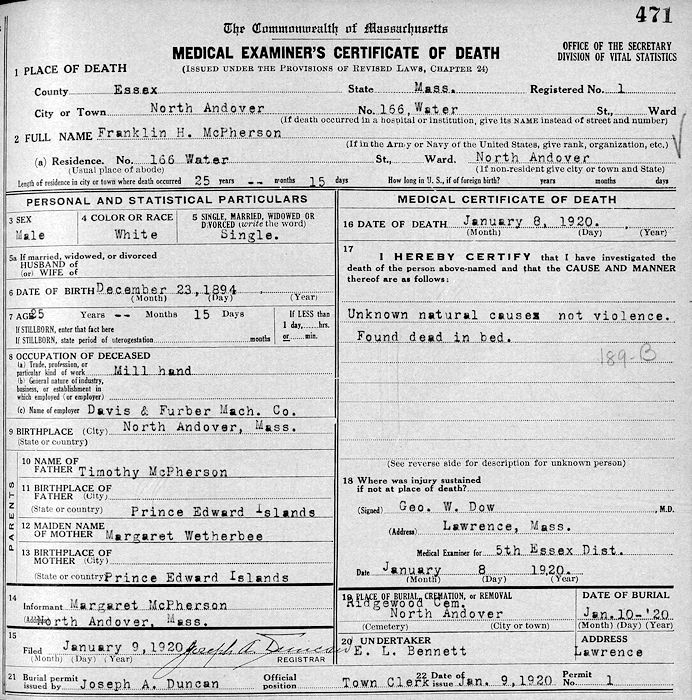 471
The Commonwealth of Massachusetts
MEDICAL EXAMINER'S CERTIFICATE OF DEATH
(ISSUED UNDER THE PROVISIONS OF REVISED LAWS, CHAPTER 24)
OFFICE OF THE SECRETARY
DIVISION OF VITAL STATISTICS
1 PLACE OF DEATH
County Essex State Mass. Registered No. 1
City or Town North Andover No. 166, Water St., Ward
(If death occurred in a hospital or institution, give its NAME instead of street and number)
2 FULL NAME Franklin H. McPherson
(If in the Army or Navy of the United States, give rank, organization, etc.)
(a) Residence. No. 166 Water St., Ward. North Andover
(Usual place of abode) (If non-resident give city or town and State)
Length of residence in city or town where death occurred 25 years -- months 15 days How long in U. S., if of foreign birth? years months days
PERSONAL AND STATISTICAL PARTICULARS
3 SEX 4 COLOR OR RACE 5 SINGLE, MARRIED, WIDOWED OR
DIVORCED (write the word)
Male White Single.
5a If married, widowed, or divorced
HUSBAND of
(or) WIFE of
6 DATE OF BIRTH December 23, 1894
(Month) (Day) (Year)
7 AGE 25 Years -- Months 15 Days If LESS than
1 day,......hrs.
or......min.
If STILLBORN, enter that fact here
If STILLBORN, state period of uterogestation months
8 OCCUPATION OF DECEASED
(a) Trade, profession, or
particular kind of work Mill hand
(b) General nature of industry,
business, or establishment in
which employed (or employer)
(c) Name of employer Davis & Furber Mach. Co.
9 BIRTHPLACE (City) North Andover, Mass.
(State or country)
PARENTS
10 NAME OF
FATHER Timothy McPherson
11 BIRTHPLACE OF
FATHER (City)
(State or country) Prince Edward Islands
12 MAIDEN NAME
OF MOTHER Margaret Wetherbee
13 BIRTHPLACE OF
MOTHER (City)
(State or country) Prince Edward Islands
14
Informant Margaret McPherson
(Address) North Andover, Mass.
15
Filed January 9, 1920 Joseph A. Duncan
(Month) (Day) (Year) REGISTRAR
MEDICAL CERTIFICATE OF DEATH
16 DATE OF DEATH January 8, 1920.
(Month) (Day) (Year)
17
I HEREBY CERTIFY that I have investigated the
death of the person above-named and that the CAUSE AND MANNER
thereof are as follows:
Unknown natural causes not violence.
Found dead in bed.
189-B
(See reverse side for description for unknown person)
18 Where was injury sustained
if not at place of death?
(Signed) Geo. W. Dow, M.D.
(Address) Lawrence, Mass.
Medical Examiner for 5th Essex Dist.
Date January 8 1920.
(Month) (Day) (Year)
19 PLACE OF BURIAL, CREMATION, OR REMOVAL DATE OF BURIAL
Ridgewood Cem.
North Andover Jan. 10-'20
(Cemetery) (City or town) (Month) (Day) (Year)
20 UNDERTAKER ADDRESS
E. L. Bennett Lawrence
21 Burial permit
issued by Joseph A. Duncan Official
position Town Clerk 22 Date of
issue Jan. 9, 1920 Permit
No. 1